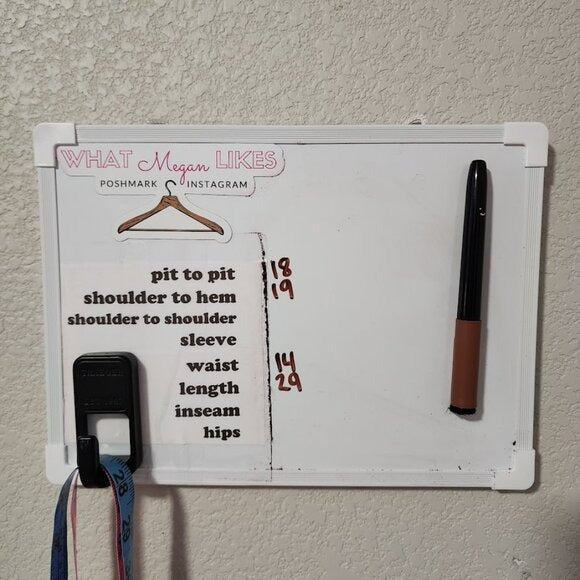 WHAT Megan LIKES
POSHMARK INSTAGRAM
pit to pit 18
shoulder to hem 19
shoulder to shoulder
sleeve
waist 14
length 29
inseam
hips